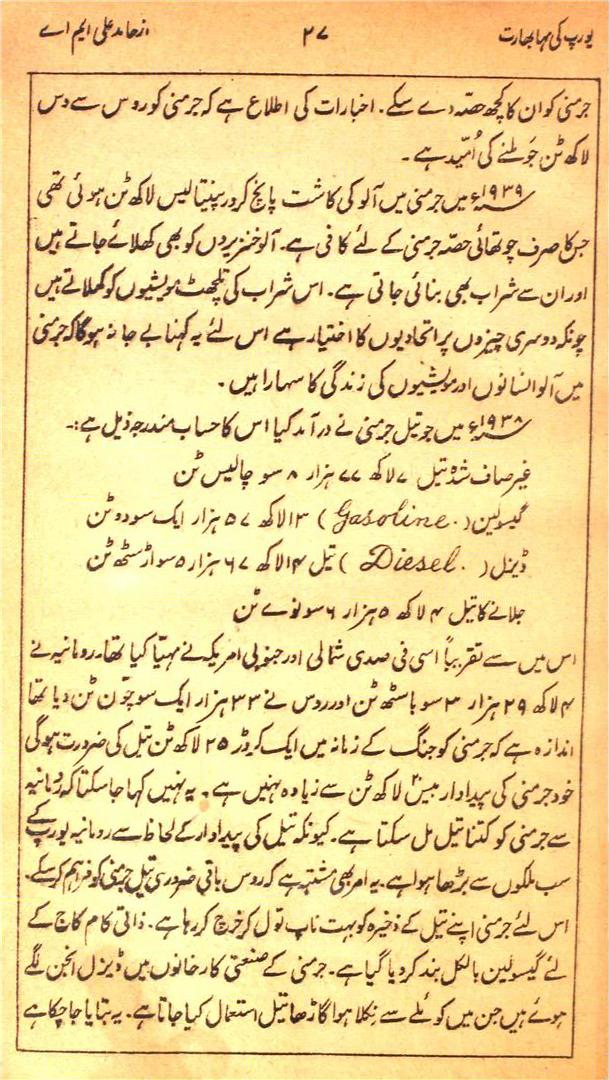 یورپ کی مہابھارت ۲۷ از حامد علی ایم اے
جرمنی کو ان کا کچھ حصّہ دے سکے۔ اخبارات کی اطلاع ہے کہ جرمنی کو روس سے دس
لاکھ ٹن جَو ملنے کی اُمّید ہے۔
۱۹۳۹ء میں جرمنی میں آلو کی کاشت پانچ کروڑ پینتالیس لاکھ ٹن ہوئی تھی
جس کا صرف چوتھائی حصّہ جرمنی کے لئے کافی ہے۔ آلو خنزیروں کو بھی کھلائے جاتے ہیں
اور ان سے شراب بھی بنائی جاتی ہے۔ اس شراب کی تلچھٹ مویشیوں کو کھلاتے ہیں
چونکہ دوسری چیزوں پر اتحادیوں کا اختیار ہے اس لئے یہ کہنا بے جا نہ ہوگا کہ جرمنی
میں آلو انسانوں اور مویشیوں کی زندگی کا سہارا ہیں۔
۱۹۳۸ء میں جو تیل جرمنی نے درآمد کیا اس کا حساب مندرجہ ذیل ہے:۔
غیر صاف شدہ تیل ۷ لاکھ ۷۷ ہزار ۸ سو چالیس ٹن
گیسولین (Gasoline.) ۱۳ لاکھ ۵۷ ہزار ایک سو دو ٹن
ڈیزل (Diesel.) تیل ۱۴ لاکھ ۶۷ ہزار ۵ سو اڑسٹھ ٹن
جلانے کا تیل ۴ لاکھ ۵ ہزار ۶ سو نوے ٹن
اس میں سے تقریباً اسی فی صدی شمالی اور جنوبی امریکہ نے مہیّا کیا تھا۔ رومانیہ نے
۴ لاکھ ۲۹ ہزار ۳ سو باسٹھ ٹن اور روس نے ۳۳ ہزار ایک سو چوّن ٹن دیا تھا
اندازہ ہے کہ جرمنی کو جنگ کے زمانہ میں ایک کروڑ ۲۵ لاکھ ٹن تیل کی ضرورت ہوگی
خود جرمنی کی پیداوار بیس لاکھ ٹن سے زیادہ نہیں ہے۔ یہ نہیں کہا جا سکتا کہ رومانیہ
سے جرمنی کو کتنا تیل مل سکتا ہے۔ کیونکہ تیل کی پیداوار کے لحاظ سے رومانیہ یورپ کے
سب ملکوں سے بڑھا ہوا ہے۔ یہ امر بھی مشتبہ ہے کہ روس باقی ضروری تیل جرمنی کو فراہم کر سکے۔
اس لئے جرمنی اپنے تیل کے ذخیرہ کو بہت ناپ تول کر خرچ کر رہا ہے۔ ذاتی کام کاج کے
لئے گیسولین بالکل بند کر دیا گیا ہے۔ جرمنی کے صنعتی کارخانوں میں ڈیزل انجن لگے
ہوئے ہیں جن میں کوئلے سے نکلا ہوا گاڑھا تیل استعمال کیا جاتا ہے۔ یہ بتایا جا چکا ہے